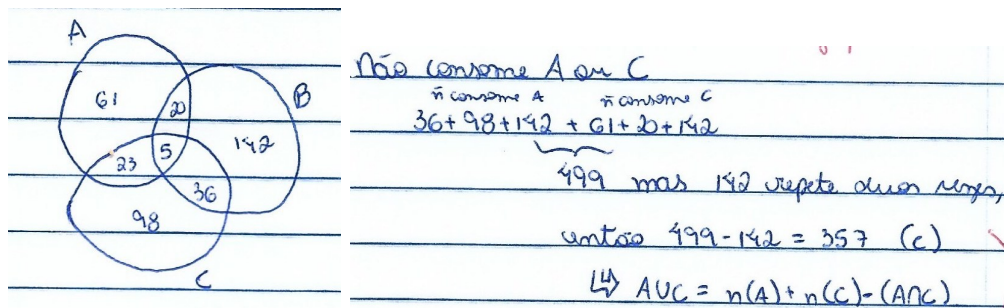 A
61
20
B
142
5
23
36
98
C
Não consome A ou C
ñ consome A ñ consome C
36+98+142 + 61+20+142
499 mas 142 repete duas vezes,
então 499-142 = 357 (c)
↳ AUC = n(A)+n(C)-(A∩C)